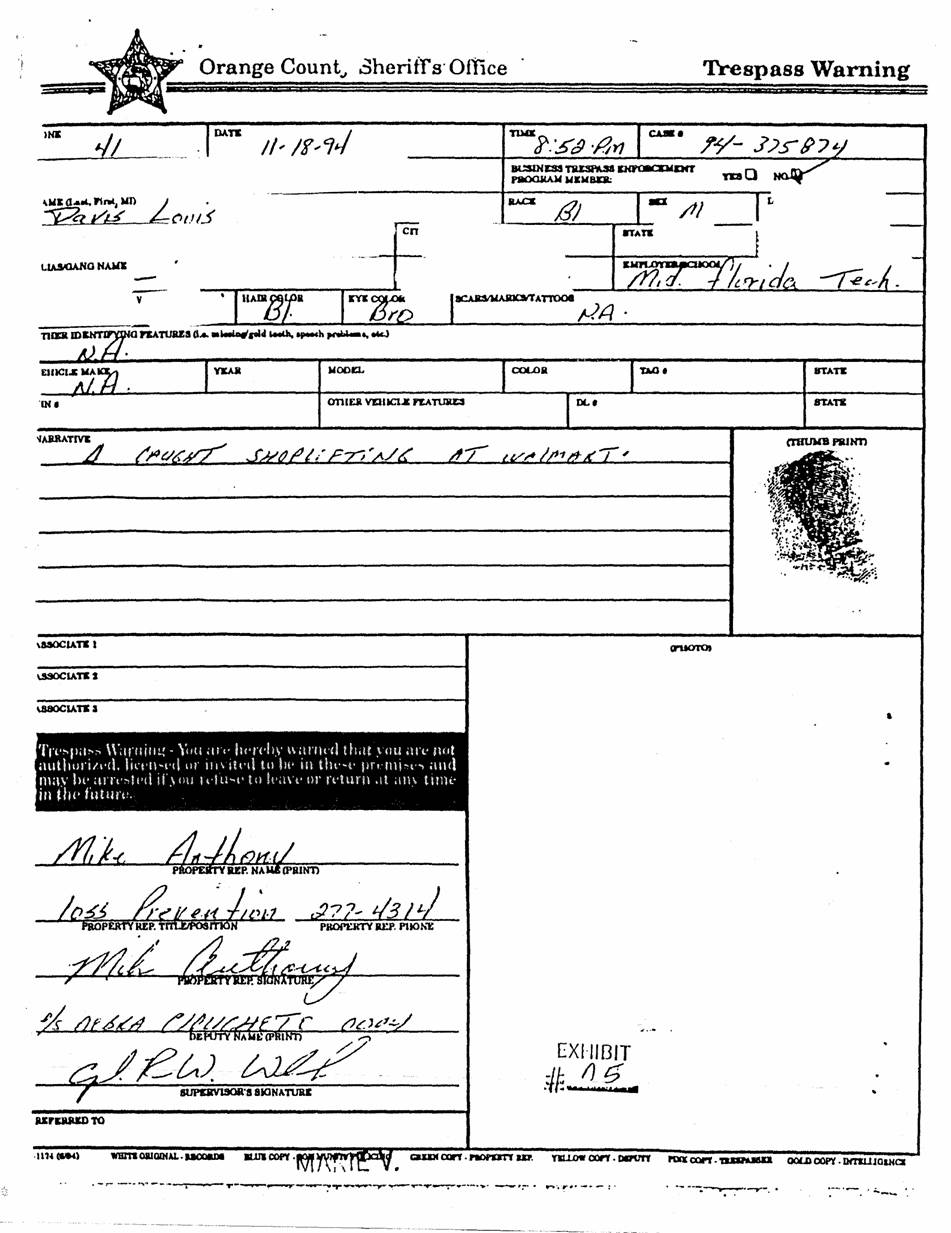 Orange County Sheriff's Office Trespass Warning
DATE TIME CASE #
41 11-18-94 8:52 PM 94-375874
BUSINESS TRESPASS ENFORCEMENT
PROGRAM MEMBER: YES NO
AME (Last, First, MI) RACE SEX L
Davis Louis Bl M
CIT STATE
LIAS/GANG NAME EMPLOYER/SCHOOL
Mid. Florida Tech.
V HAIR COLOR EYE COLOR SCARS/MARKS/TATTOOS
Bl. Bro N.A.
THER IDENTIFYING FEATURES (i.e. missing/gold teeth, speech problems, etc.)
N.A.
EHICLE MAKE YEAR MODEL COLOR TAG # STATE
N.A.
IN # OTHER VEHICLE FEATURES DL # STATE
NARRATIVE (THUMB PRINT)
CAUGHT SHOPLIFTING AT WALMART.
ASSOCIATE 1 (PHOTO)
ASSOCIATE 2
ASSOCIATE 3
Trespass Warning - You are hereby warned that you are not
authorized, licensed or invited to be in these premises and
may be arrested if you refuse to leave or return at any time
in the future.
Mike Anthony
PROPERTY REP. NAME (PRINT)
loss Prevention 277-4314
PROPERTY REP. TITLE/POSITION PROPERTY REP. PHONE
Mike Anthony
PROPERTY REP. SIGNATURE
D/S DEBRA
DEPUTY NAME (PRINT)
SUPERVISOR'S SIGNATURE
EXHIBIT
# 15
REFERRED TO
-1174 (6/94) WHITE ORIGINAL - RECORDS BLUE COPY - GREEN COPY - PROPERTY REP. YELLOW COPY - DEPUTY PINK COPY - TRESPASSER GOLD COPY - INTELLIGENCE
MARIE V.